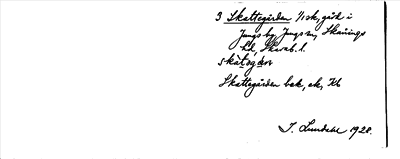 3 Skattegården 1/1 sk, gård i
Jungs by, Jungs sn, Skånings
hd, Skarab. l.
skàtəgá̄ṇ
Skattegården bek, ek, Kb
I. Lundahl 1928.